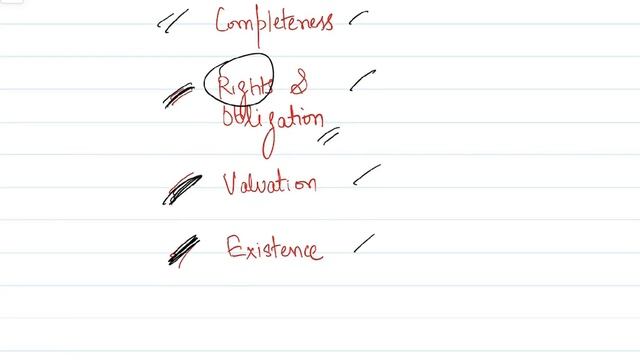 Completeness
Rights &
Obligation
Valuation
Existence